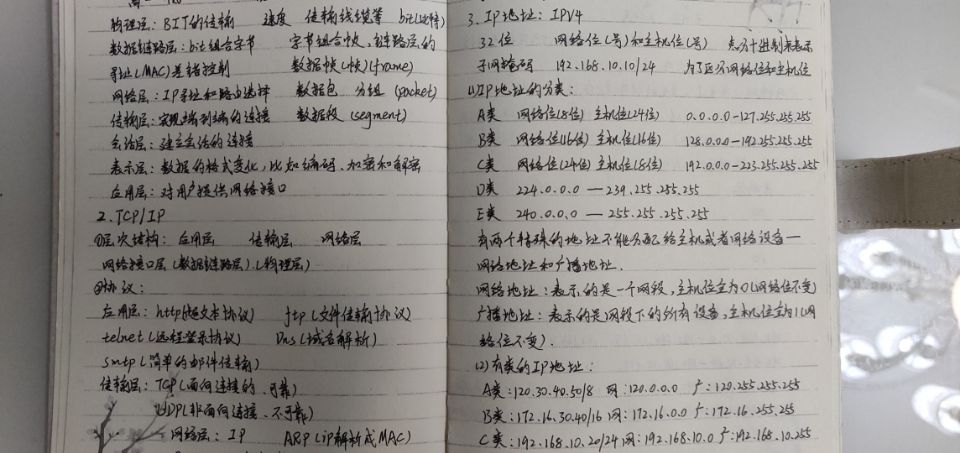 物理层：BIT的传输 速度 传输线缆等 bit(比特)
数据链路层：bit组合字节 字节组合帧、链路层的
寻址(MAC)差错控制 数据帧(帧)(frame)
网络层：IP寻址和路由选择 数据包 分组 (packet)
传输层：实现端到端的连接 数据段 (segment)
会话层：建立会话的连接
表示层：数据的格式变化，比如编码、加密和解密
应用层：对用户提供网络接口
2.TCP/IP
①层次结构：应用层 传输层 网络层
网络接口层(数据链路层)(物理层)
②协议：
应用层：http(超文本协议) ftp(文件传输协议)
telnet(远程登录协议) Dns(域名解析)
smtp(简单的邮件传输)
传输层：TCP(面向连接的、可靠)
UDP(非面向连接、不可靠)
网络层：IP ARP(ip解析成MAC)
3.IP地址：IPV4
32位 网络位(号)和主机位(号) 点分十进制来表示
子网掩码 192.168.10.10/24 为了区分网络位和主机位
(1)IP地址的分类：
A类 网络位(8位) 主机位(24位) 0.0.0.0-127.255.255.255
B类 网络位(16位) 主机位(16位) 128.0.0.0-192.255.255.255
C类 网络位(24位) 主机位(8位) 192.0.0.0-223.255.255.255
D类 224.0.0.0 — 239.255.255.255
E类 240.0.0.0 — 255.255.255.255
有两个特殊的地址不能分配给主机或者网络设备—
网络地址和广播地址.
网络地址：表示的是一个网段，主机位全为0(网络位不变)
广播地址：表示的是网段下的所有设备，主机位全为1(网
络位不变).
(2)有类的IP地址：
A类:120.30.40.50/8 网:120.0.0.0 广:120.255.255.255
B类:172.16.30.40/16 网:172.16.0.0 广:172.16.255.255
C类:192.168.10.20/24 网:192.168.10.0 广:192.168.10.255